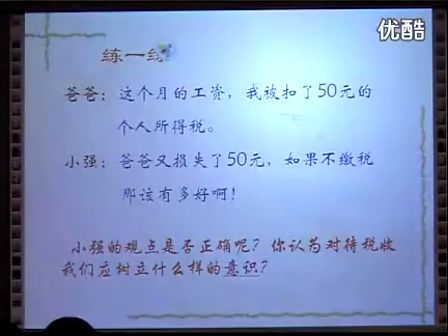 优酷
练一练
爸爸：这个月的工资，我被扣了50元的
个人所得税。
小强：爸爸又损失了50元，如果不缴税
那该有多好啊！
小强的观点是否正确呢？你认为对待税收
我们应树立什么样的意识？